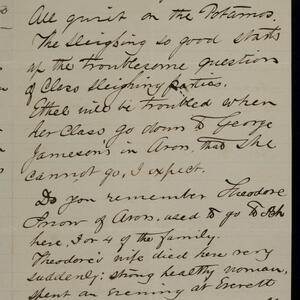 All quiet on the Potamos.
The sleighing so good starts
up the troublesome question
of Class sleighing parties.
Ethel will be troubled when
her class go down to George
Jamesons in Avon, that She
cannot go, I expect.
Do you remember Theodore
Snow of Avon, used to go to Sch
here, 3 or 4 of the family.
Theodore's wife died here very
suddenly; strong healthy woman,
spent an Evening at Everett